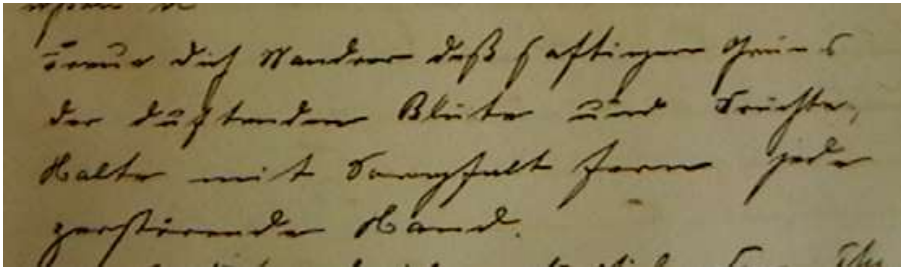 Freue dich Wandrer deß saftigen Grüns
der duftenden Blüte und Früchte,
Halte mit Sorgfalt fern jede
zerstörende Hand.